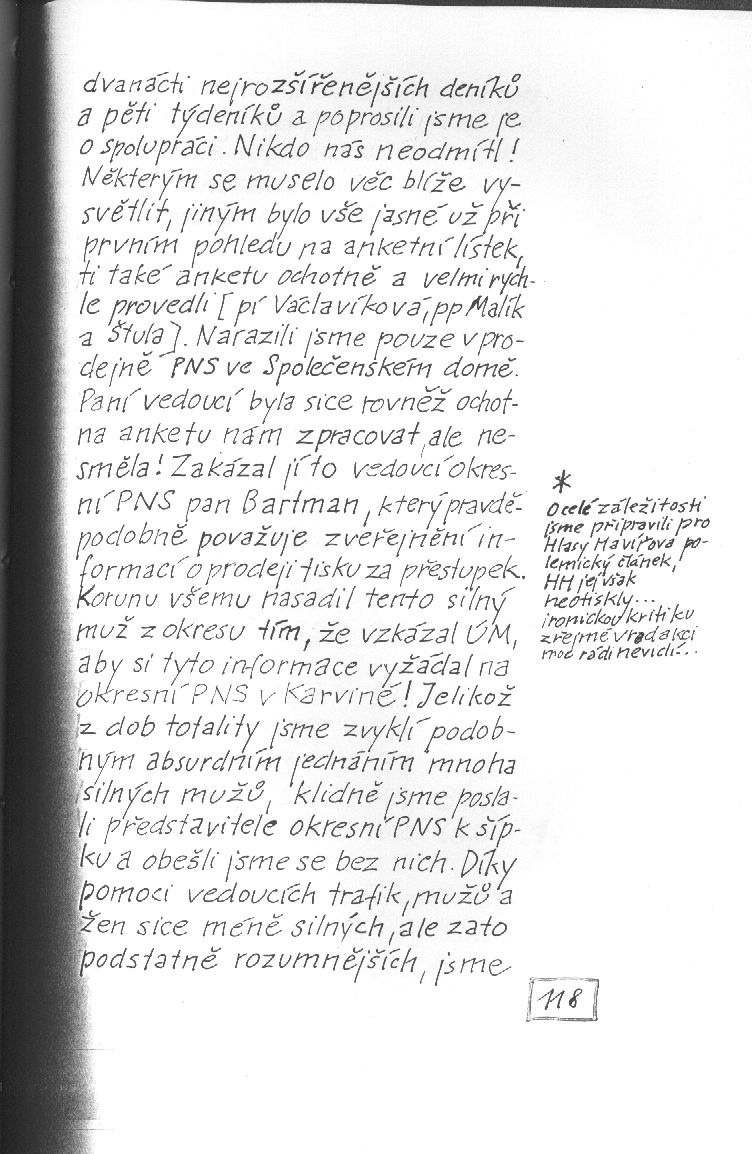 dvanácti nejrozšířenějších deníků
a pěti týdeníků a poprosili jsme je
o spolupráci. Nikdo nás neodmítl!
Některým se muselo věc blíže vy-
světlit, jiným bylo vše jasné už při
prvním pohledu na anketní lístek,
ti také anketu ochotně a velmi rych-
le provedli [pí Václavíková, pp Malík
a Štula]. Narazili jsme pouze v pro-
dejně PNS ve Společenském domě.
Paní vedoucí byla sice rovněž ochot-
na anketu nám zpracovat, ale ne-
směla! Zakázal jí to vedoucí okres-
ní PNS pan Bartman, který pravdě-
podobně považuje zveřejnění in-
formací o prodeji tisku za přestupek.
Korunu všemu nasadil tento silný
muž z okresu tím, že vzkázal ÚM,
aby si tyto informace vyžádal na
okresní PNS v Karviné! Jelikož
z dob totality jsme zvyklí podob-
ným absurdním jednáním mnoha
silných mužů, klidně jsme posla-
li představitele okresní PNS k šíp-
ku a obešli jsme se bez nich. Díky
pomoci vedoucích trafik, mužů a
žen sice méně silných, ale zato
podstatně rozumnějších, jsme
*
O celé záležitosti
jsme připravili pro
Hlasy Havířova po-
lemický článek,
HH jej však
neotiskly...
ironickou kritiku
zřejmě v redakci
moc rádi neviděli...
118